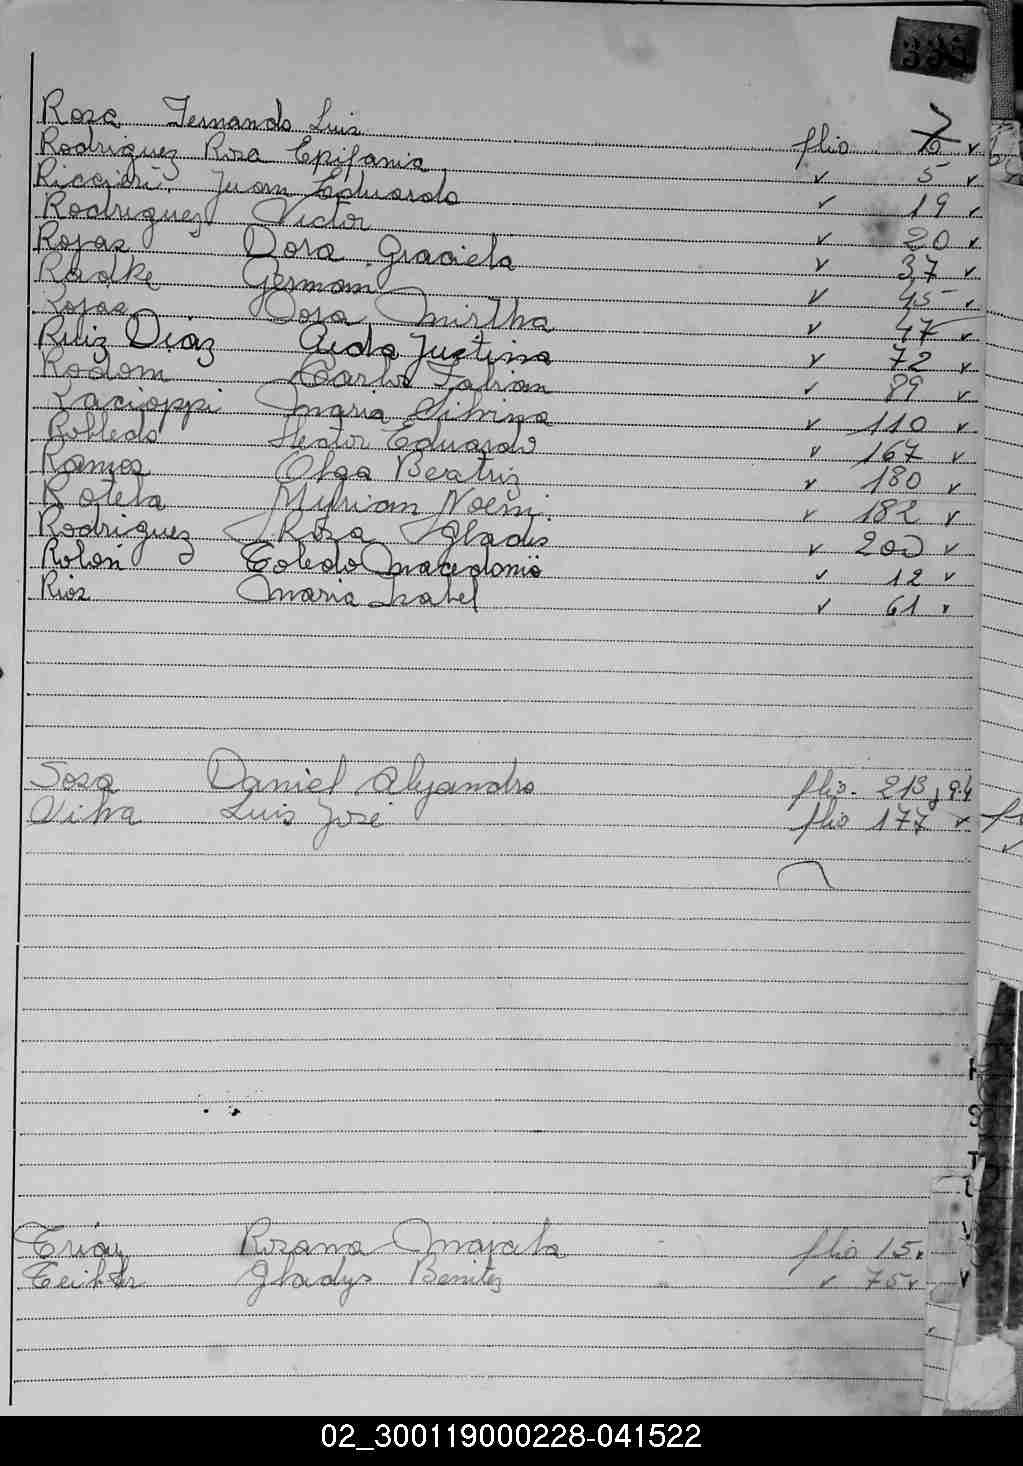 335
Rosa Fernando Luis flio 7 v
Rodriguez Rosa Epifania v 5 v
Riccieri Juan Eduardo v 19 v
Rodriguez Victor v 20 v
Rojas Dora Graciela v 37 v
Radke German v 45 v
Rojas Rosa Mirtha v 47 v
Ruiz Diaz Aida Justina v 72 v
Rodom Carlos Fabian v 89 v
Maria Silvina v 110 v
Robledo Hector Eduardo v 167 v
Ramos Olga Beatriz v 180 v
Rotela Myriam Noemi v 182 v
Rodriguez Rosa Gladis v 200 v
Rolon Toledo Macedonio v 12 v
Rios Maria Isabel v 61 v
Sosa Daniel Alejandro flio. 213
Silva Luis José flio 177 v
Rosana flio 15 v
Gladys Benitez v 75 v
02_300119000228-041522